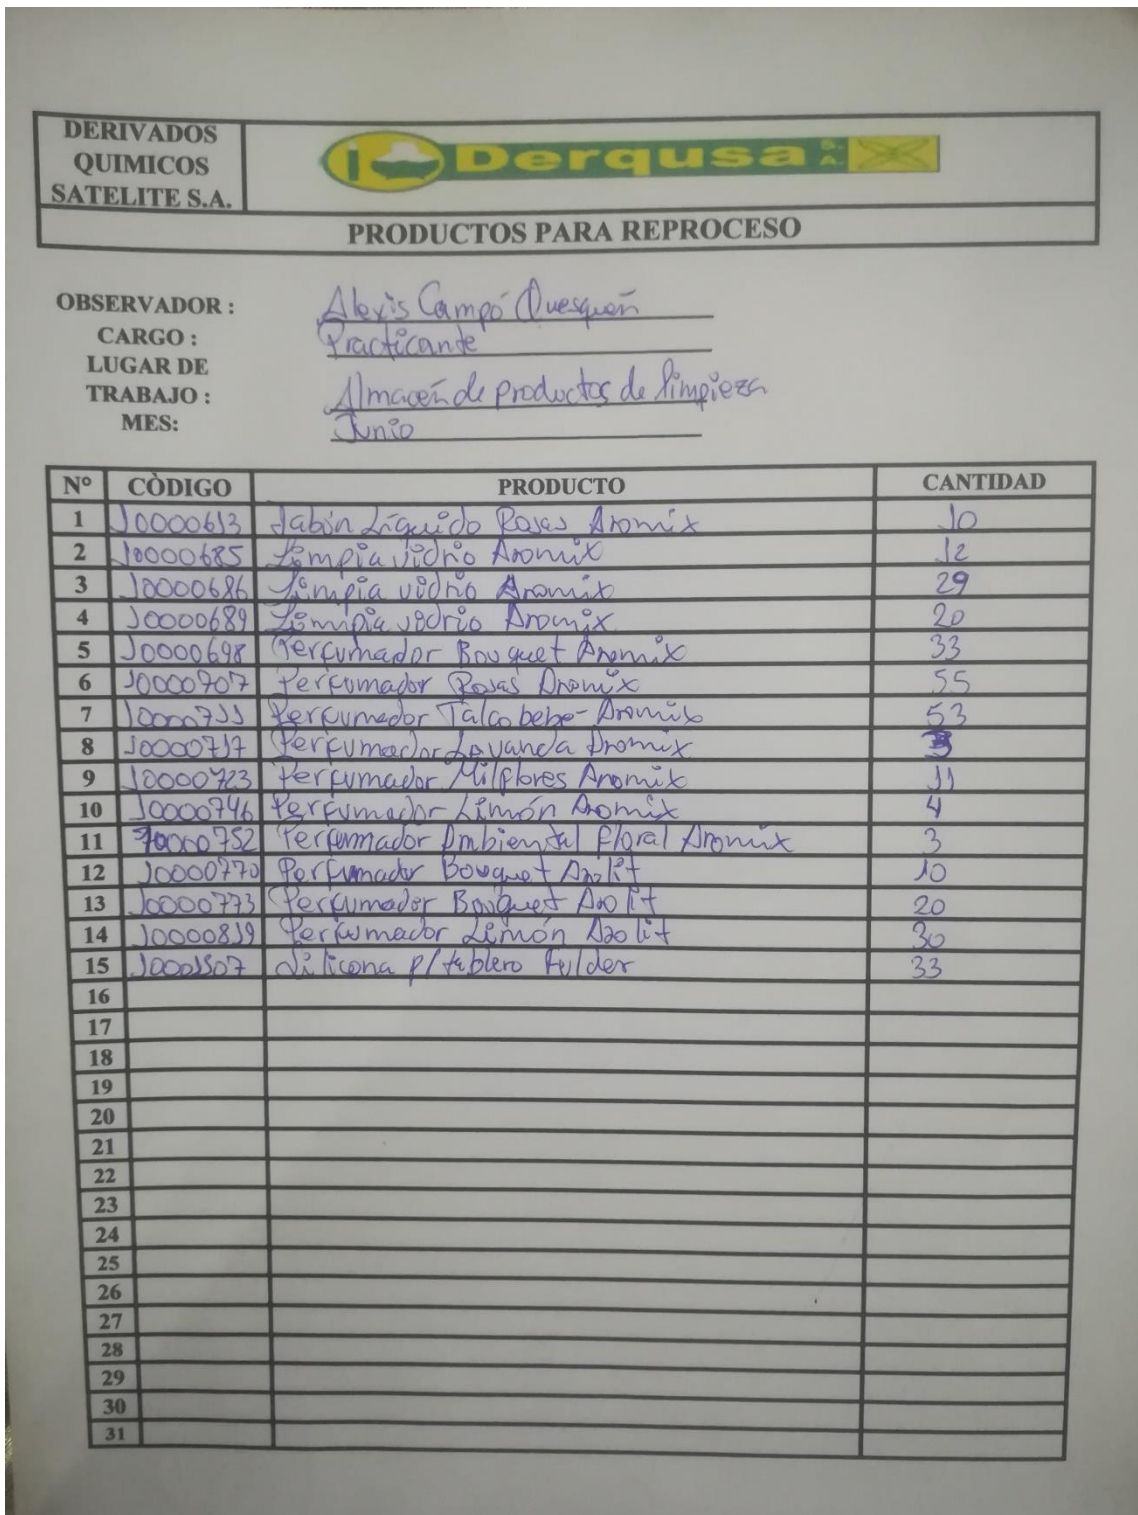 DERIVADOS
QUIMICOS
SATELITE S.A.
Derqusa S.A
PRODUCTOS PARA REPROCESO
OBSERVADOR : Alexis Campó Quesquén
CARGO : Practicante
LUGAR DE
TRABAJO : Almacén de productos de limpieza
MES: Junio
N° CÒDIGO PRODUCTO CANTIDAD
1 10000613 Jabón Líquido Rosas Aromix 10
2 10000685 Limpia vidrio Aromix 12
3 10000686 Limpia vidrio Aromix 29
4 10000689 Limpia vidrio Aromix 20
5 10000698 Perfumador Bouquet Aromix 33
6 10000707 Perfumador Rosas Aromix 55
7 10000711 Perfumador Talco bebe - Aromix 53
8 10000717 Perfumador Lavanda Aromix
9 10000723 Perfumador Milflores Aromix 11
10 10000746 Perfumador Limón Aromix 4
11 10000752 Perfumador Ambiental Floral Aromix 3
12 10000770 Perfumador Bouquet Azolit 10
13 10000773 Perfumador Bouquet Azolit 20
14 10000819 Perfumador Limón Azolit 30
15 10001507 Silicona p/tablero 33
16
17
18
19
20
21
22
23
24
25
26
27
28
29
30
31